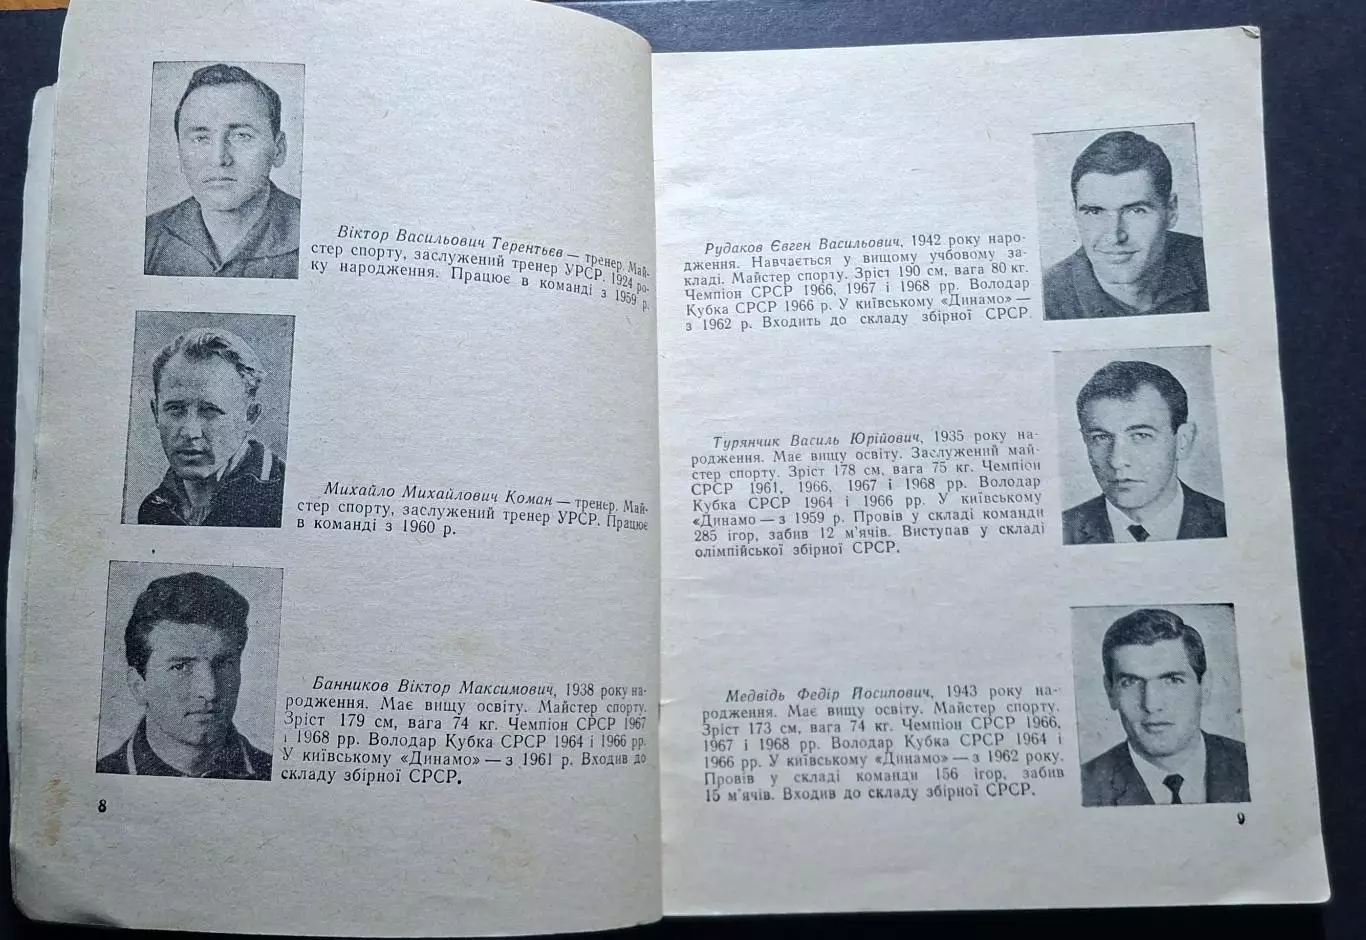 Віктор Васильович Терентьєв — тренер. Май-
стер спорту, заслужений тренер УРСР. 1924 ро-
ку народження. Працює в команді з 1959 р.
Михайло Михайлович Коман — тренер. Май-
стер спорту, заслужений тренер УРСР. Працює
в команді з 1960 р.
Банников Віктор Максимович, 1938 року на-
родження. Має вищу освіту. Майстер спорту.
Зріст 179 см, вага 74 кг. Чемпіон СРСР 1967
і 1968 рр. Володар Кубка СРСР 1964 і 1966 рр.
У київському «Динамо» — з 1961 р. Входив до
складу збірної СРСР.
8
Рудаков Євген Васильович, 1942 року наро-
дження. Навчається у вищому учбовому за-
кладі. Майстер спорту. Зріст 190 см, вага 80 кг.
Чемпіон СРСР 1966, 1967 і 1968 рр. Володар
Кубка СРСР 1966 р. У київському «Динамо» —
з 1962 р. Входить до складу збірної СРСР.
Турянчик Василь Юрійович, 1935 року на-
родження. Має вищу освіту. Заслужений май-
стер спорту. Зріст 178 см, вага 75 кг. Чемпіон
СРСР 1961, 1966, 1967 і 1968 рр. Володар
Кубка СРСР 1964 і 1966 рр. У київському
«Динамо — з 1959 р. Провів у складі команди
285 ігор, забив 12 м'ячів. Виступав у складі
олімпійської збірної СРСР.
Медвідь Федір Йосипович, 1943 року на-
родження. Має вищу освіту. Майстер спорту.
Зріст 173 см, вага 74 кг. Чемпіон СРСР 1966,
1967 і 1968 рр. Володар Кубка СРСР 1964 і
1966 рр. У київському «Динамо» — з 1962 року.
Провів у складі команди 156 ігор, забив
15 м'ячів. Входив до складу збірної СРСР.
9